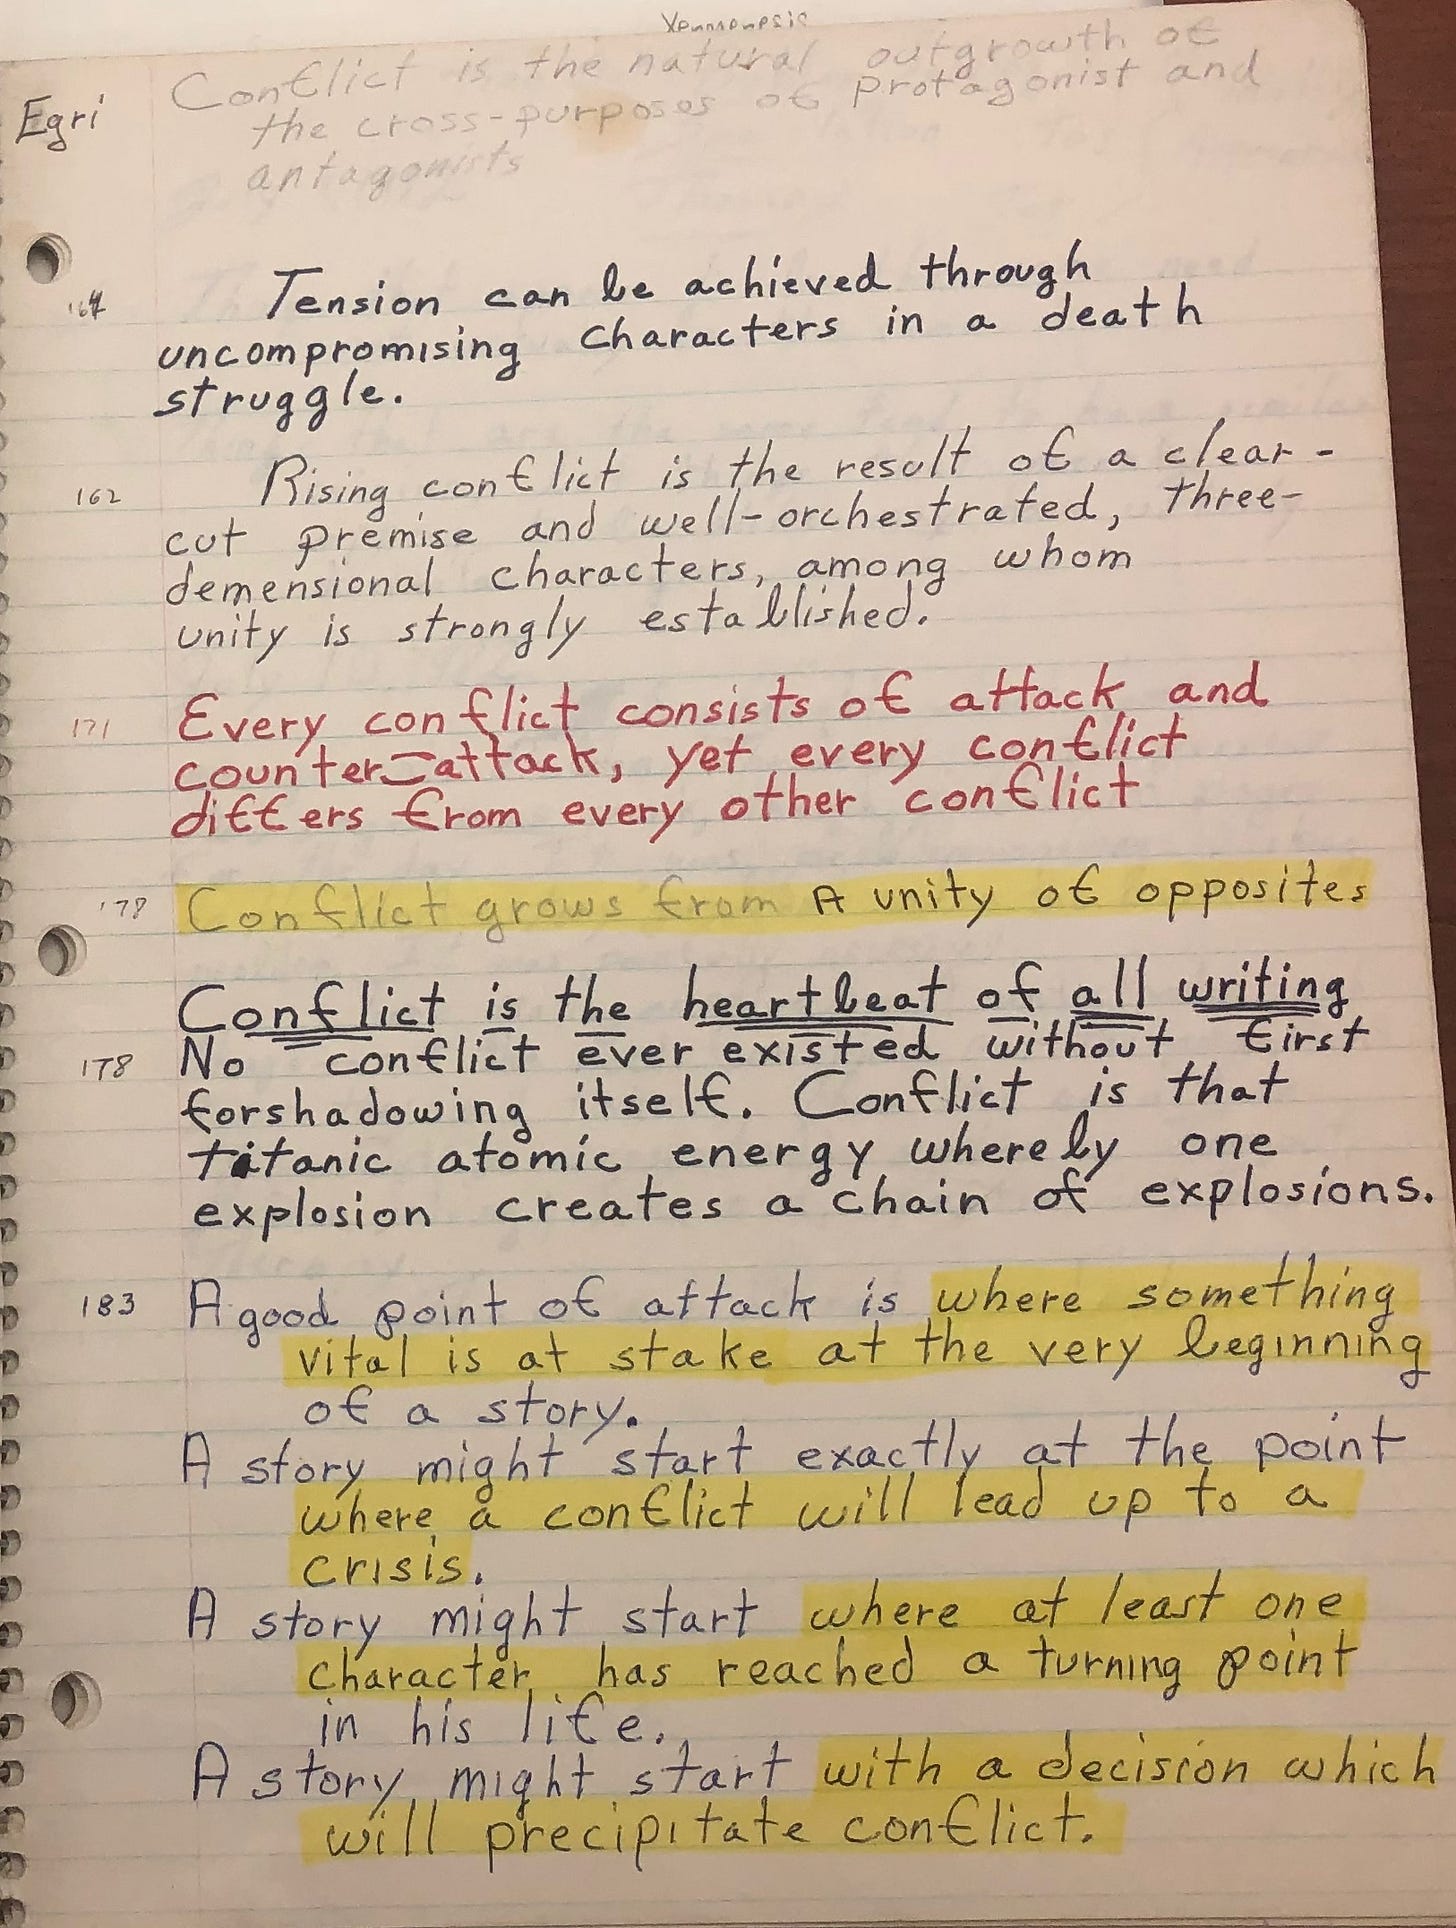 Xenmonesis
Conflict is the natural outgrowth of
Egri
the cross-purposes of protagonist and
antagonists
164 Tension can be achieved through
uncompromising characters in a death
struggle.
162 Rising conflict is the result of a clear-
cut premise and well-orchestrated, three-
demensional characters, among whom
unity is strongly established.
171 Every conflict consists of attack and
counter-attack, yet every conflict
differs from every other conflict
178 Conflict grows from A unity of opposites
Conflict is the heartbeat of all writing
178 No conflict ever existed without first
forshadowing itself. Conflict is that
titanic atomic energy whereby one
explosion creates a chain of explosions.
183 A good point of attack is where something
vital is at stake at the very beginning
of a story.
A story might start exactly at the point
where a conflict will lead up to a
crisis.
A story might start where at least one
character has reached a turning point
in his life.
A story might start with a decision which
will precipitate conflict.